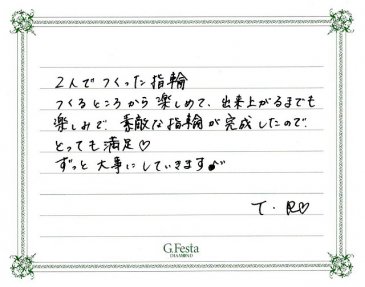 2人でつくった指輪
つくるところから楽しめて、出来上がるまでも
楽しみで、素敵な指輪が完成したので
とっても満足♡
ずっと大事にしていきます♪
T.R♡
G.Festa
DIAMOND